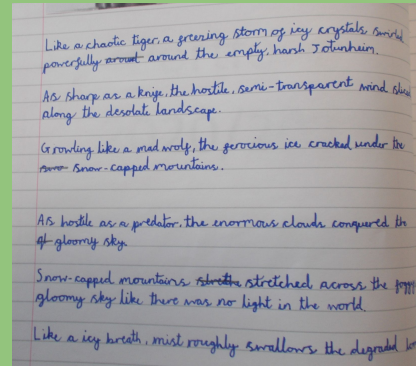 Like a chaotic tiger, a freezing storm of icy crystals swirled
powerfully around around the empty, harsh Jotunheim.
As sharp as a knife, the hostile, semi-transparent wind
along the desolate landscape.
Growling like a mad wolf, the ferocious ice cracked under the
snow-capped mountains.
As hostile as a predator, the enormous clouds conquered th
of gloomy sky.
Snow-capped mountains stretched across the foggy
gloomy sky like there was no light in the world.
Like a icy breath, mist roughly swallows the degraded